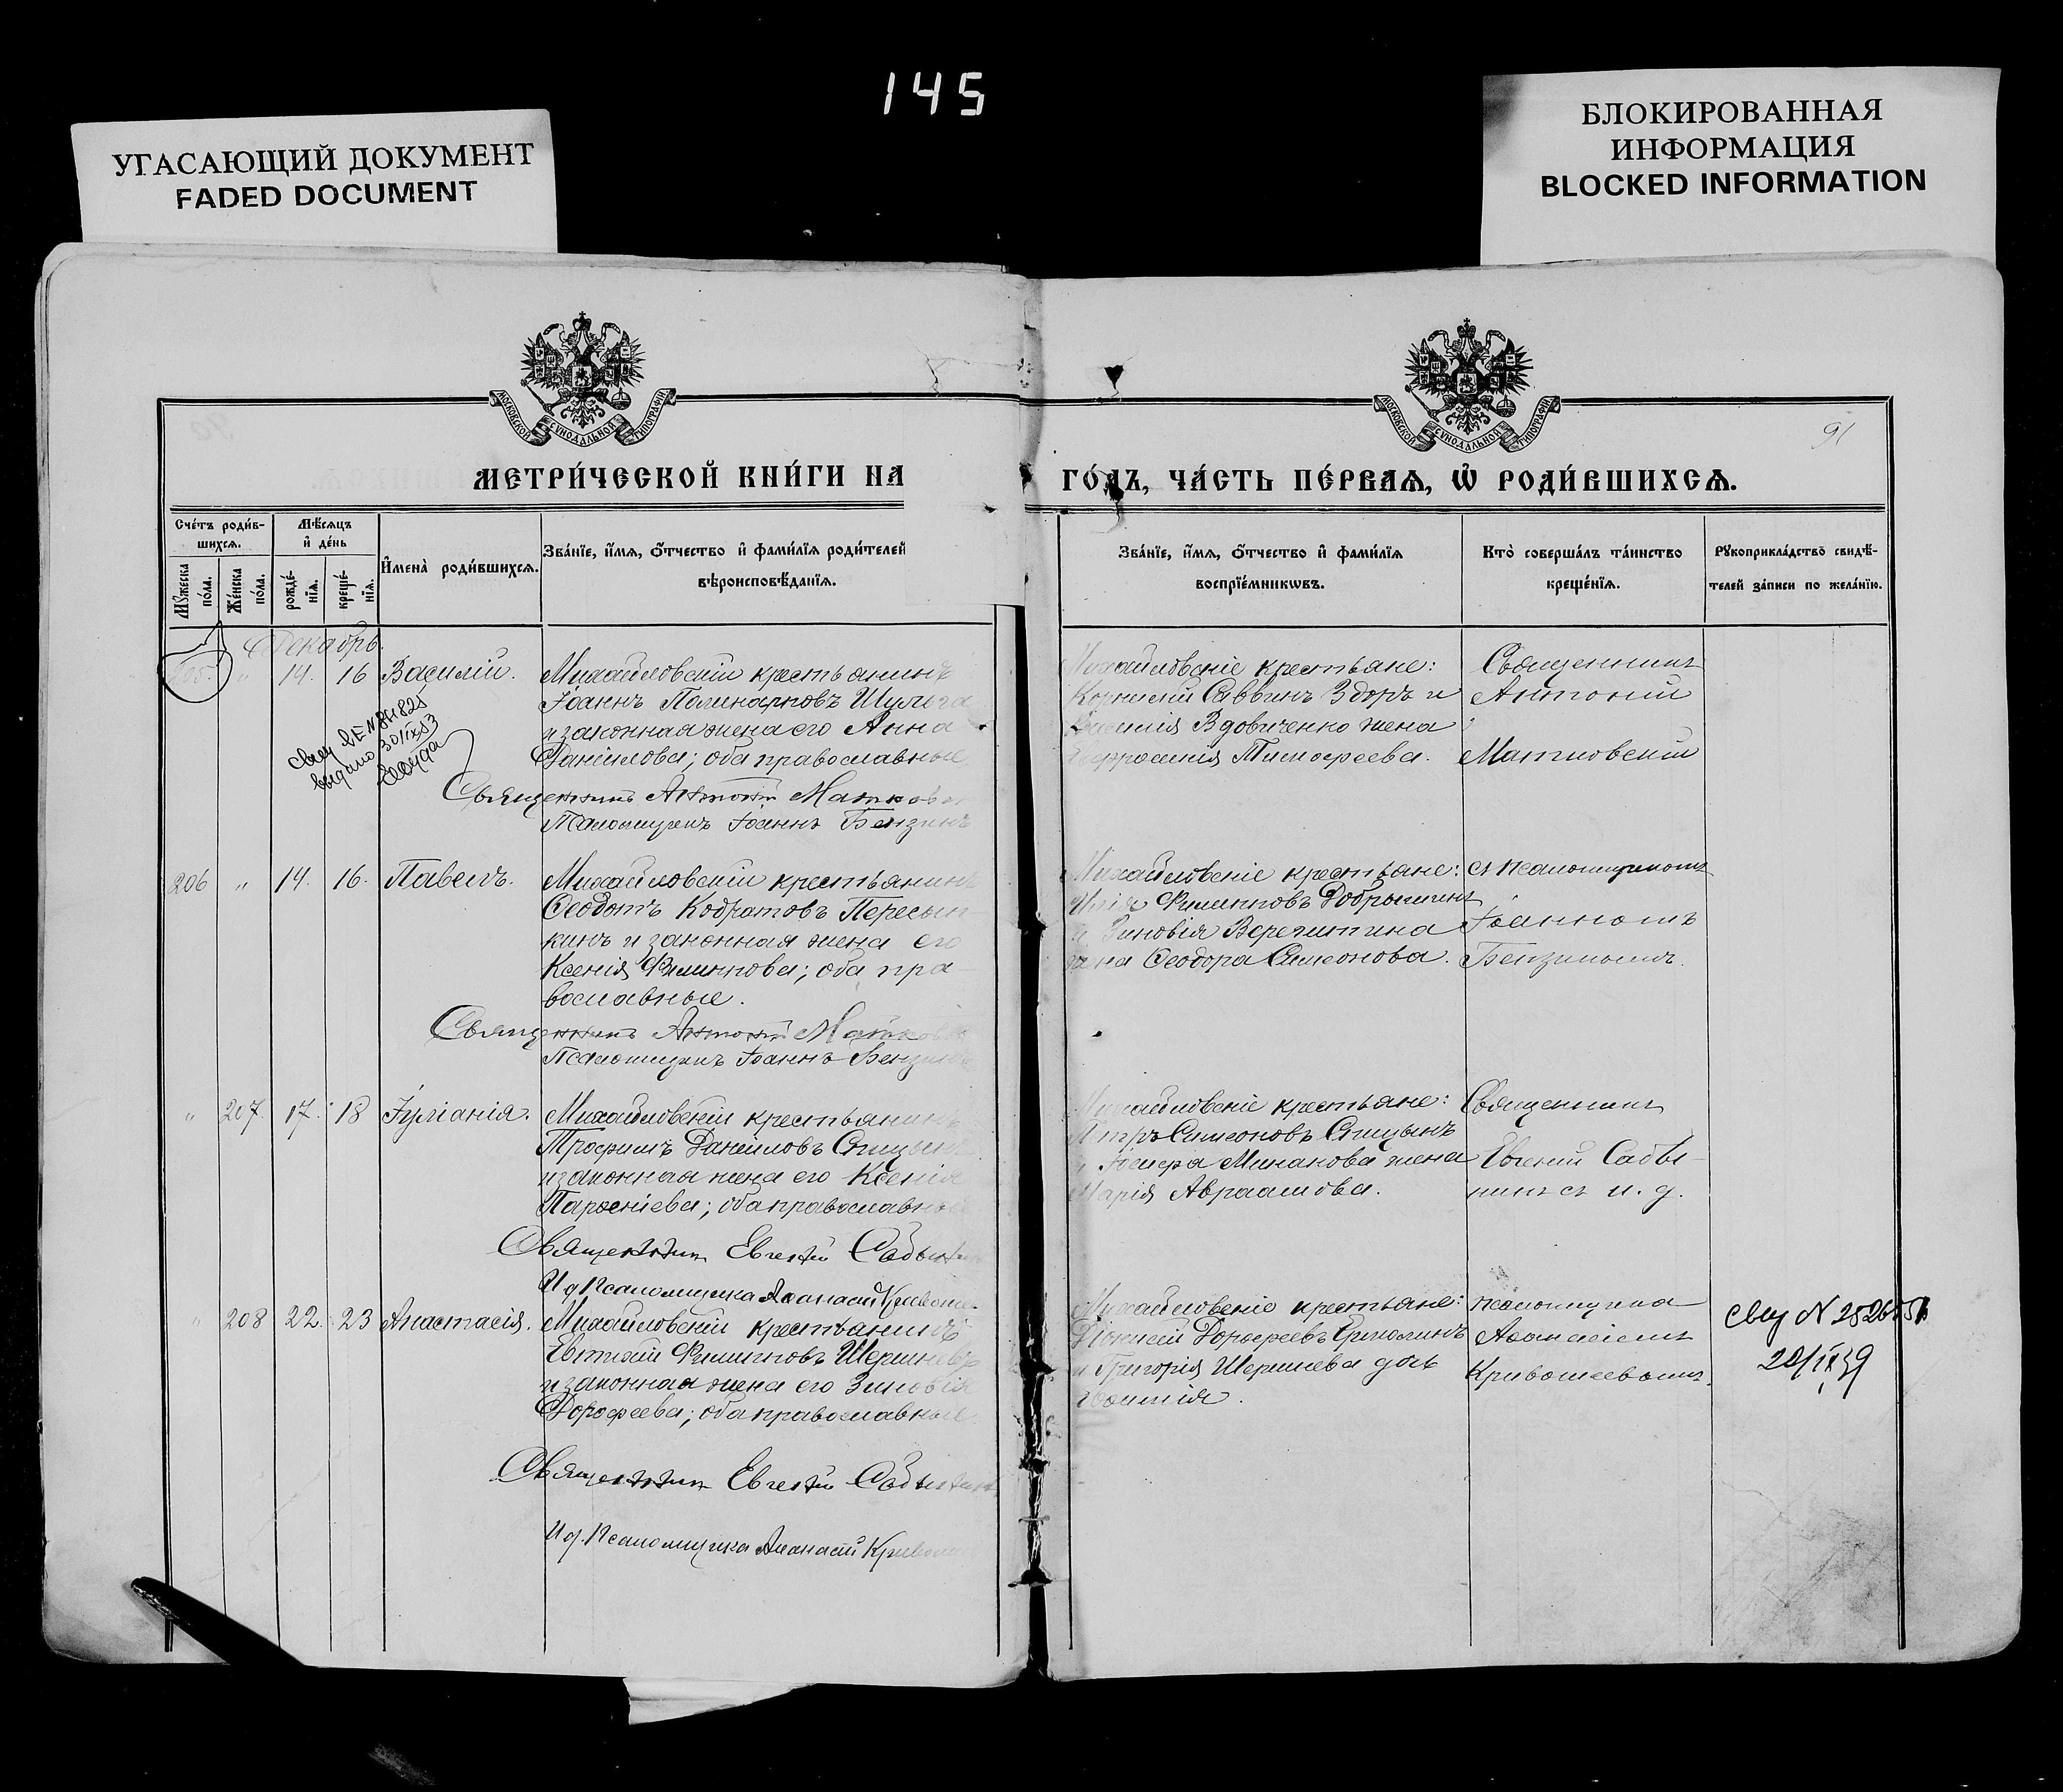 145
УГАСАЮЩИЙ ДОКУМЕНТ
FADED DOCUMENT
БЛОКИРОВАННАЯ
ИНФОРМАЦИЯ
BLOCKED INFORMATION
МОСКОВСКОЙ СѴНОДАЛЬНОЙ ТИПОГРАФІИ
МОСКОВСКОЙ СѴНОДАЛЬНОЙ ТИПОГРАФІИ
91
МЕТРИ́ЧЕСКОЙ КНИ́ГИ НА
ГО́ДЪ, ЧА́СТЬ ПЕ́РВАѦ, Ѡ҆ РОДИ́ВШИХСѦ.
Сче́тъ роди́в-
шихсѧ.
Мѣ́сѧцъ
и҆ де́нь
Мꙋ́жеска
по́ла.
Же́нска
по́ла.
рожде́-
нїѧ.
креще́-
нїѧ.
И҆мена̀ роди́вшихсѧ.
Зва́нїе, и҆́мѧ, ѻ҆́тчество и҆ фами́лїѧ роди́телей
вѣроисповѣ́данїѧ.
Зва́нїе, и҆́мѧ, ѻ҆́тчество и҆ фами́лїѧ
воспрїе́мникѡвъ.
Кто̀ соверша́лъ та́инство
креще́нїѧ.
Рꙋкоприкла́дство свидѣ́-
телей за́писи по жела́нїю.
Декабрь.
205. " 14. 16 Василій.
Михайловскій крестьянинъ
Іоаннъ Поликарповъ Шульга
и законная жена его Анна
Даніилова; оба православные
выдано 30/IX 53
Священникъ Антоній
Псаломщикъ Іоаннъ Бензинъ
Михайловскіе крестьане:
Корнилій Саввинъ Здоръ и
Вдовиченко жена
Тимофеева.
Священникъ
Антоній
Матковскій
206 " 14. 16. Павелъ.
Михайловскій крестьянинъ
Ѳеодотъ Кодратовъ Пересып-
кинъ и законная жена его
Ксенія Филиппова; оба пра-
вославные.
Священникъ Антоній
Псаломщикъ Іоаннъ Бензинъ
Михайловскіе крестьане:
Филипповъ Добрынинъ
Веретитина
жена Ѳеодора Симеонова.
съ псаломщикомъ
Іоанномъ
Бензинымъ.
" 207. 17. 18 Іуліанія.
Михайловскій крестьянинъ
Трофимъ Даніиловъ
и законная жена его Ксенія
Парѳеніева; оба православные
Священникъ Евгеній
И д Псаломщика Аѳанасій
Михайловскіе крестьане:
Петръ Симеоновъ
и Іосифа Минакова жена
Марія Авраамова.
Священникъ
Евгеній Сабы-
нинъ съ и. д.
" 208 22. 23 Анастасія.
Михайловскій крестьянинъ
Евтихій Филипповъ
и законная жена его Зиновія
Дорофеева; оба православные.
Священникъ Евгеній
И д. Псаломщика Аѳанасій
Михайловскіе крестьане:
Дорофеевъ
и Григорія Шершнева дочь
псаломщика
Аѳанасіемъ
Кривошеевымъ.
20/IX 39